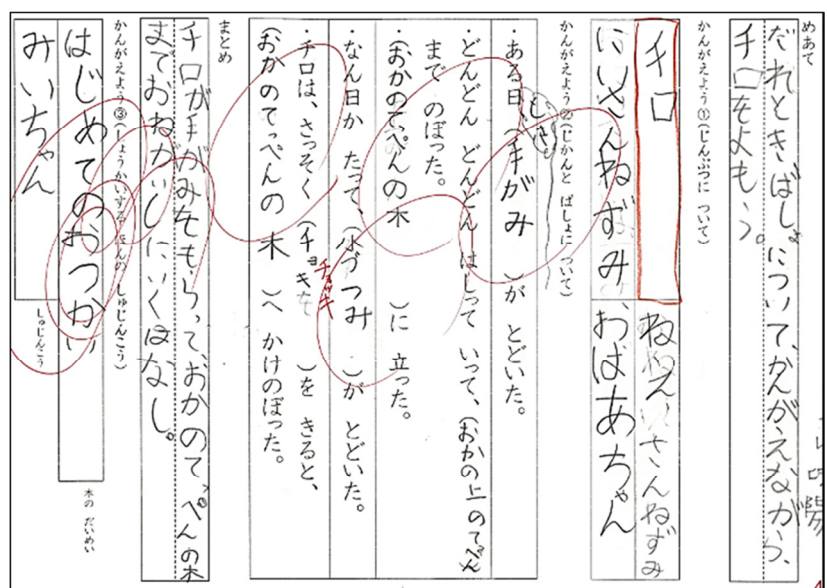 めあて
だれときばしょについて、かんがえながら、
チロをよもう。
かんがえよう①(じんぶつに ついて)
チロ
ねえさんねずみ
にいさんねずみ
おばあちゃん
かんがえよう②(じかんと ばしょに ついて)
・ある日、(手がみ )が とどいた。
・どんどん どんどん はしって いって、(おかの上のてっぺん
まで のぼった。
・(おかのてっぺんの木 )に 立った。
・なん日か たって、(小づつみ )が とどいた。
・チロは、さっそく (チョキ )を きると、
チョッキ
(おかのてっぺんの 木 )へ かけのぼった。
まとめ
チロが手がみをもらって、おかのてっぺんの木
までおねがいしにいくはなし。
かんがえよう③(しょうかいする 本の しゅじんこう)
はじめてのおつかい
本の だいめい
みいちゃん
しゅじんこう